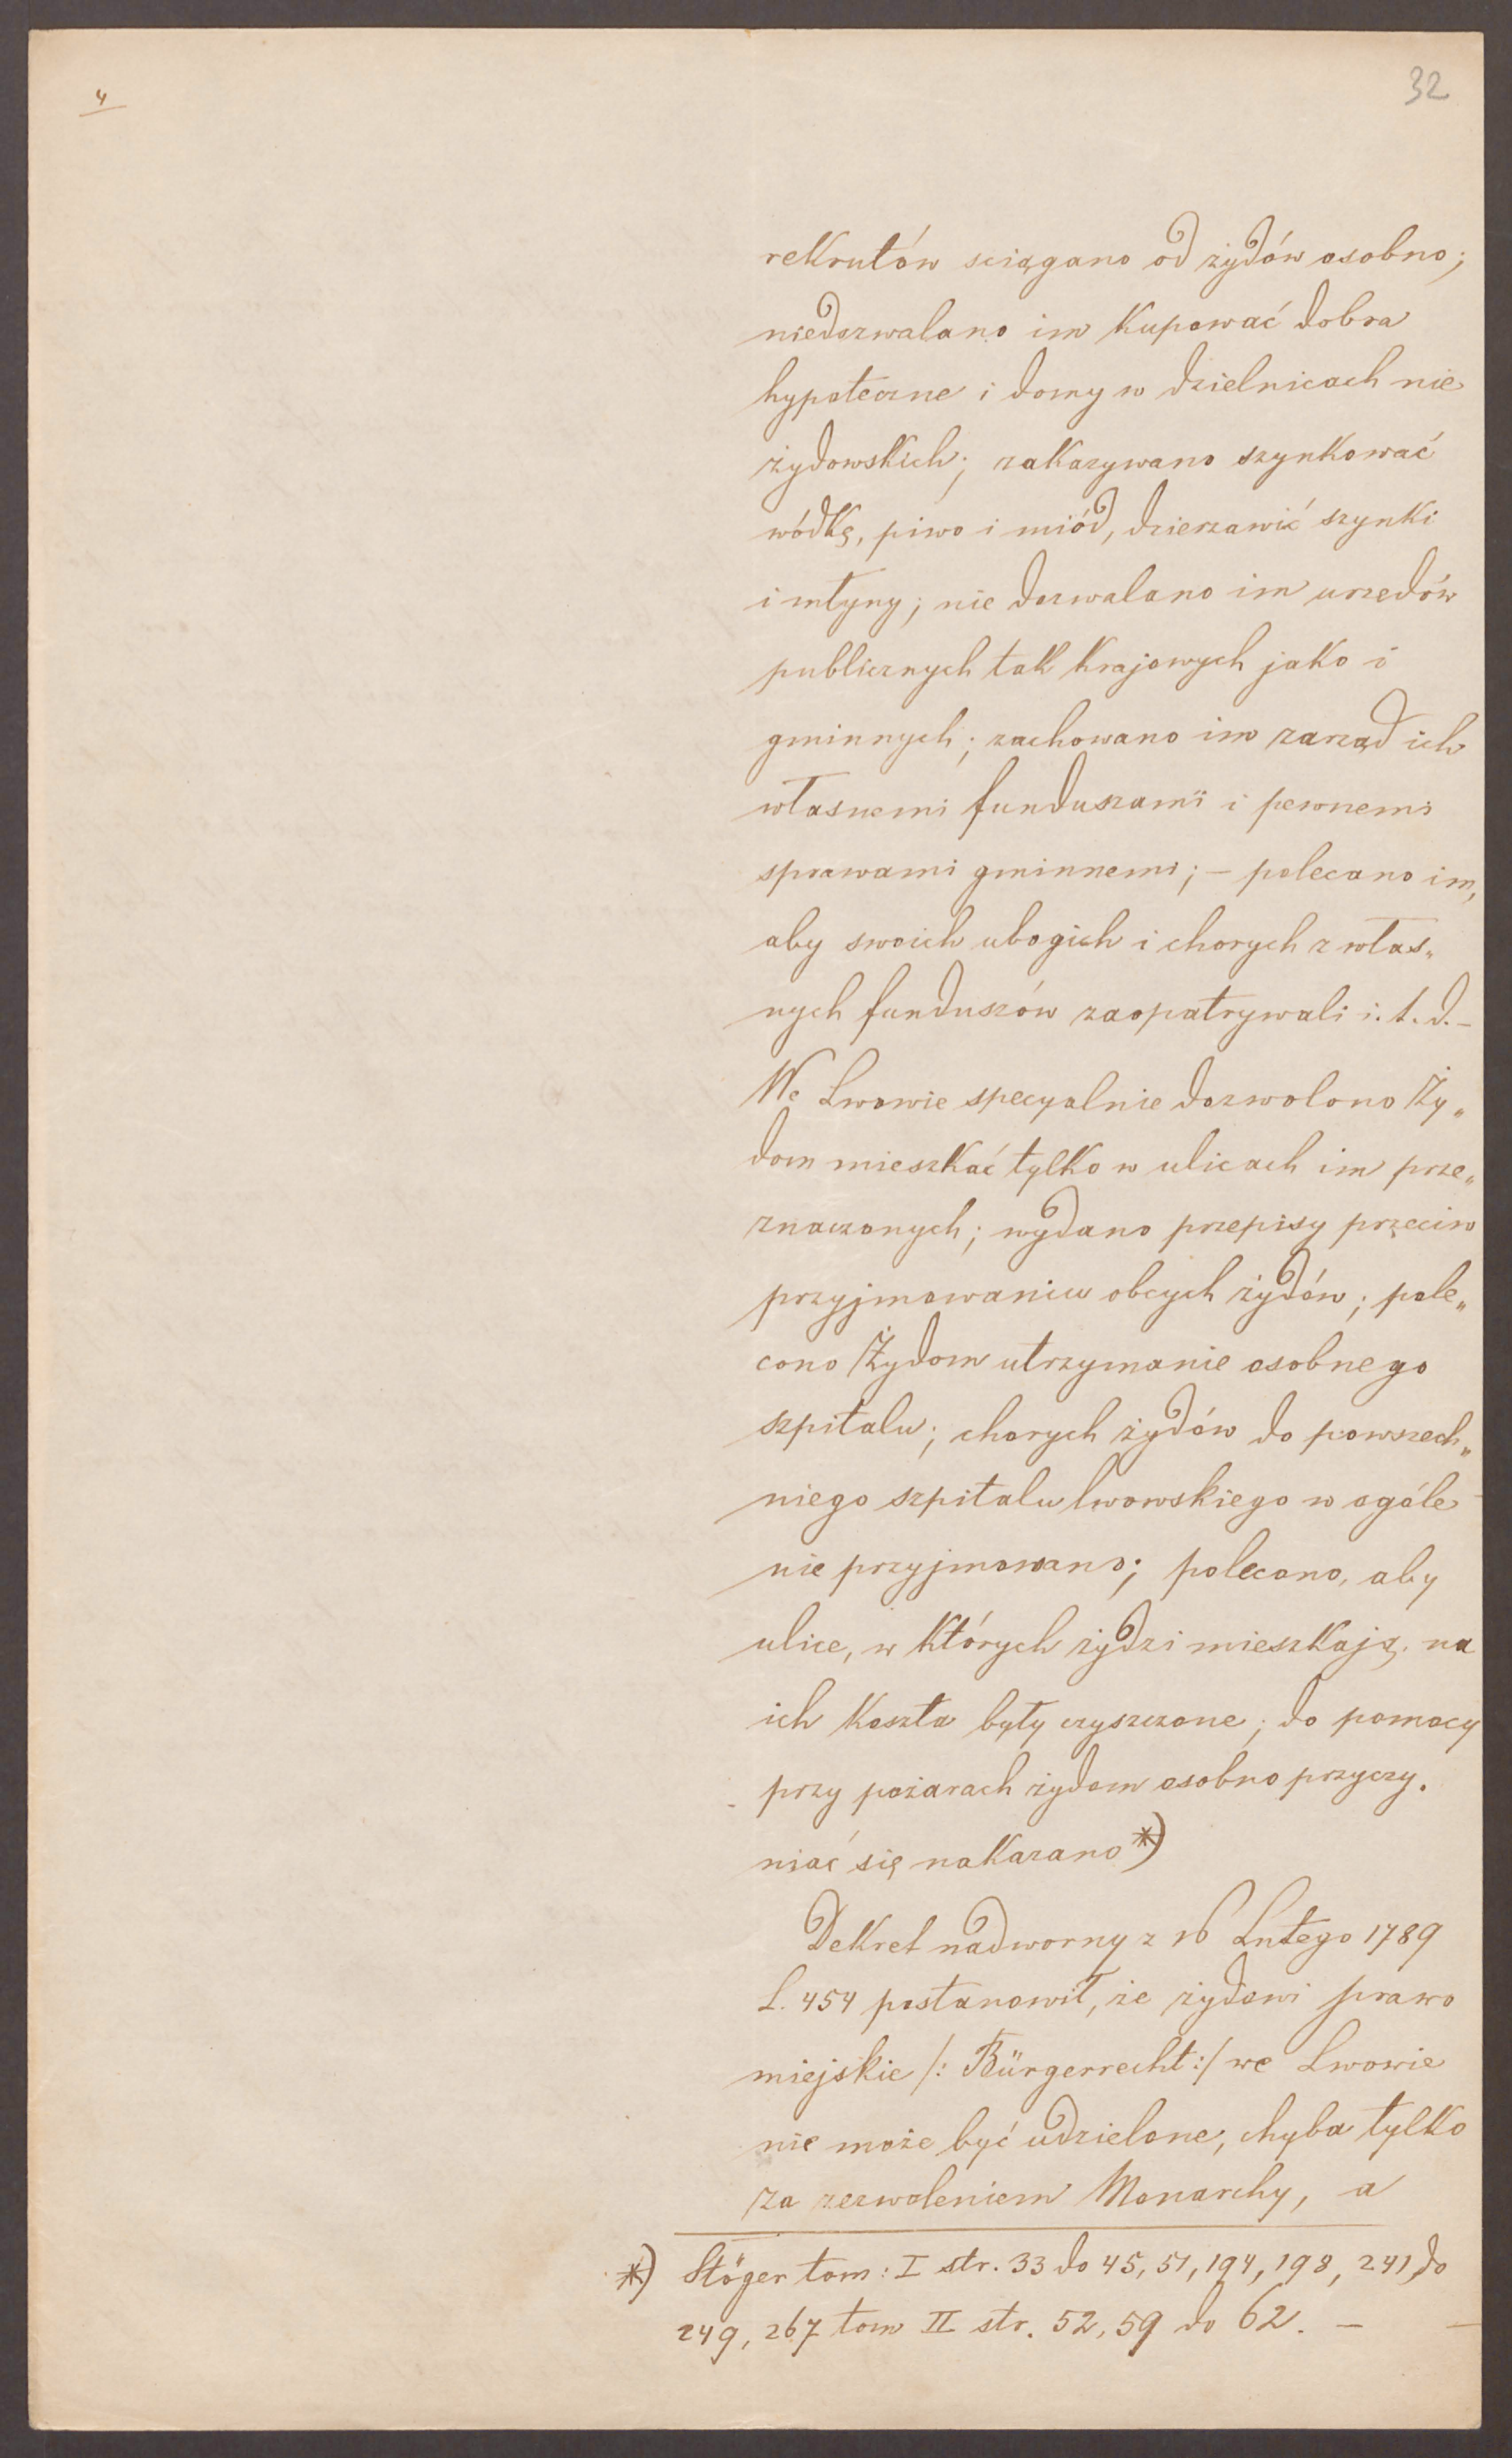 4
32
rekrutów sciągano od żydów osobno;
niedozwalano im kupować dobra
hypoteczne i domy w dzielnicach nie
żydowskich; zakazywano szynkować
wódkę, piwo i miód, dzierzawić szynki
i młyny; nie dozwalano im urzedów
publicznych tak krajowych jako i
gminnych; zachowano im zarząd ich
własnemi funduszami i pewnemi
sprawami gminnemi; – polecano im,
aby swoich ubogich i chorych z włas„
nych funduszów zaopatrywali i. t. d. –
We Lwowie specyalnie dozwolono Ży„
dom mieszkać tylko w ulicach im prze„
znaczonych; wydano przepisy przeciw
przyjmowaniu obcych żydów; pole„
cono Żydom utrzymanie osobnego
szpitalu; chorych żydów do powszech„
niego szpitalu lwowskiego w ogóle
nie przyjmowano; polecono, aby
ulice, w których żydzi mieszkają, na
ich koszta były czyszczone; do pomocy
przy pożarach żydom osobno przyczy„
niać się nakazano *)
Dekret nadworny z 16 Lutego 1789
L. 454 postanowił, że żydowi prawo
miejskie /: Bürgerrecht :/ we Lwowie
nie może być udzielone, chyba tylko
za zezwoleniem Monarchy, a
*) Stöger tom: I str. 33 do 45, 51, 194, 198, 241 do
249, 267 tom II str. 52, 59 do 62. –